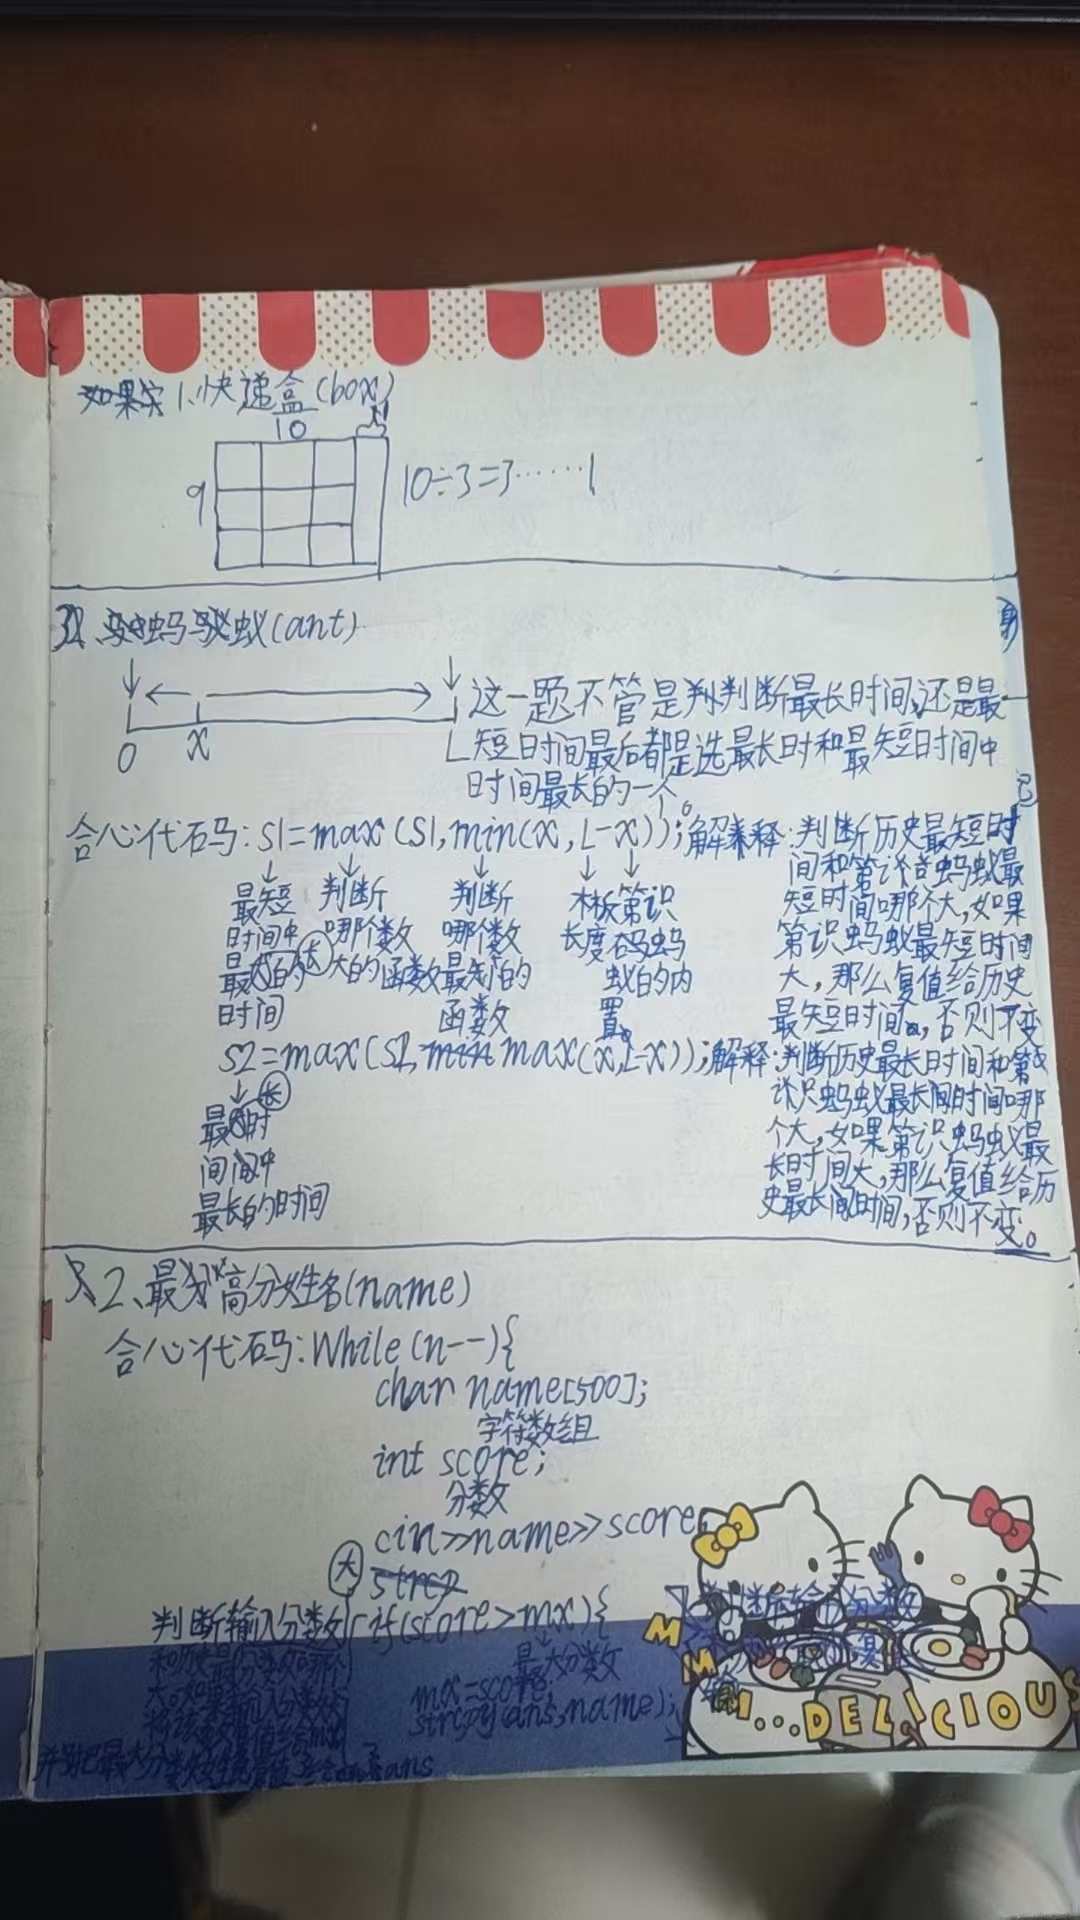 1、快递盒(box)
10
9
10÷3=3……1
蚂蚁(ant)
0 x L
这一题不管是判断最长时间,还是最
短时间最后都是选最长时和最短时间中
时间最长的一个。
合心代码:S1=max(S1,min(x,L-x));解释:判断历史最短时
间和第识蚂蚁最
短时间哪个大,如果
第识蚂蚁最短时间
大,那么复值给历史
最短时间,否则不变
最短
时间中
最大的
时间
判断
哪个数
大的函数
判断
哪个数
最小的
函数
木板
长度
第识
蚂
蚁的内
置。
S2=max(S2,max(x,L-x));解释:判断历史最长时间和第
识蚂蚁最长时间哪
个大,如果第识蚂蚁最
长时间大,那么复值给历
史最长时间,否则不变。
最长时
间中
最长的时间
2、最高分姓名(name)
合心代码:While(n--){
char name[500];
字符数组
int score;
分数
cin>>name>>score
大
判断输入分数 if(score>mx){
最大分数
mx=score;
strcpy(ans,name);
MMM...DELICIOUS